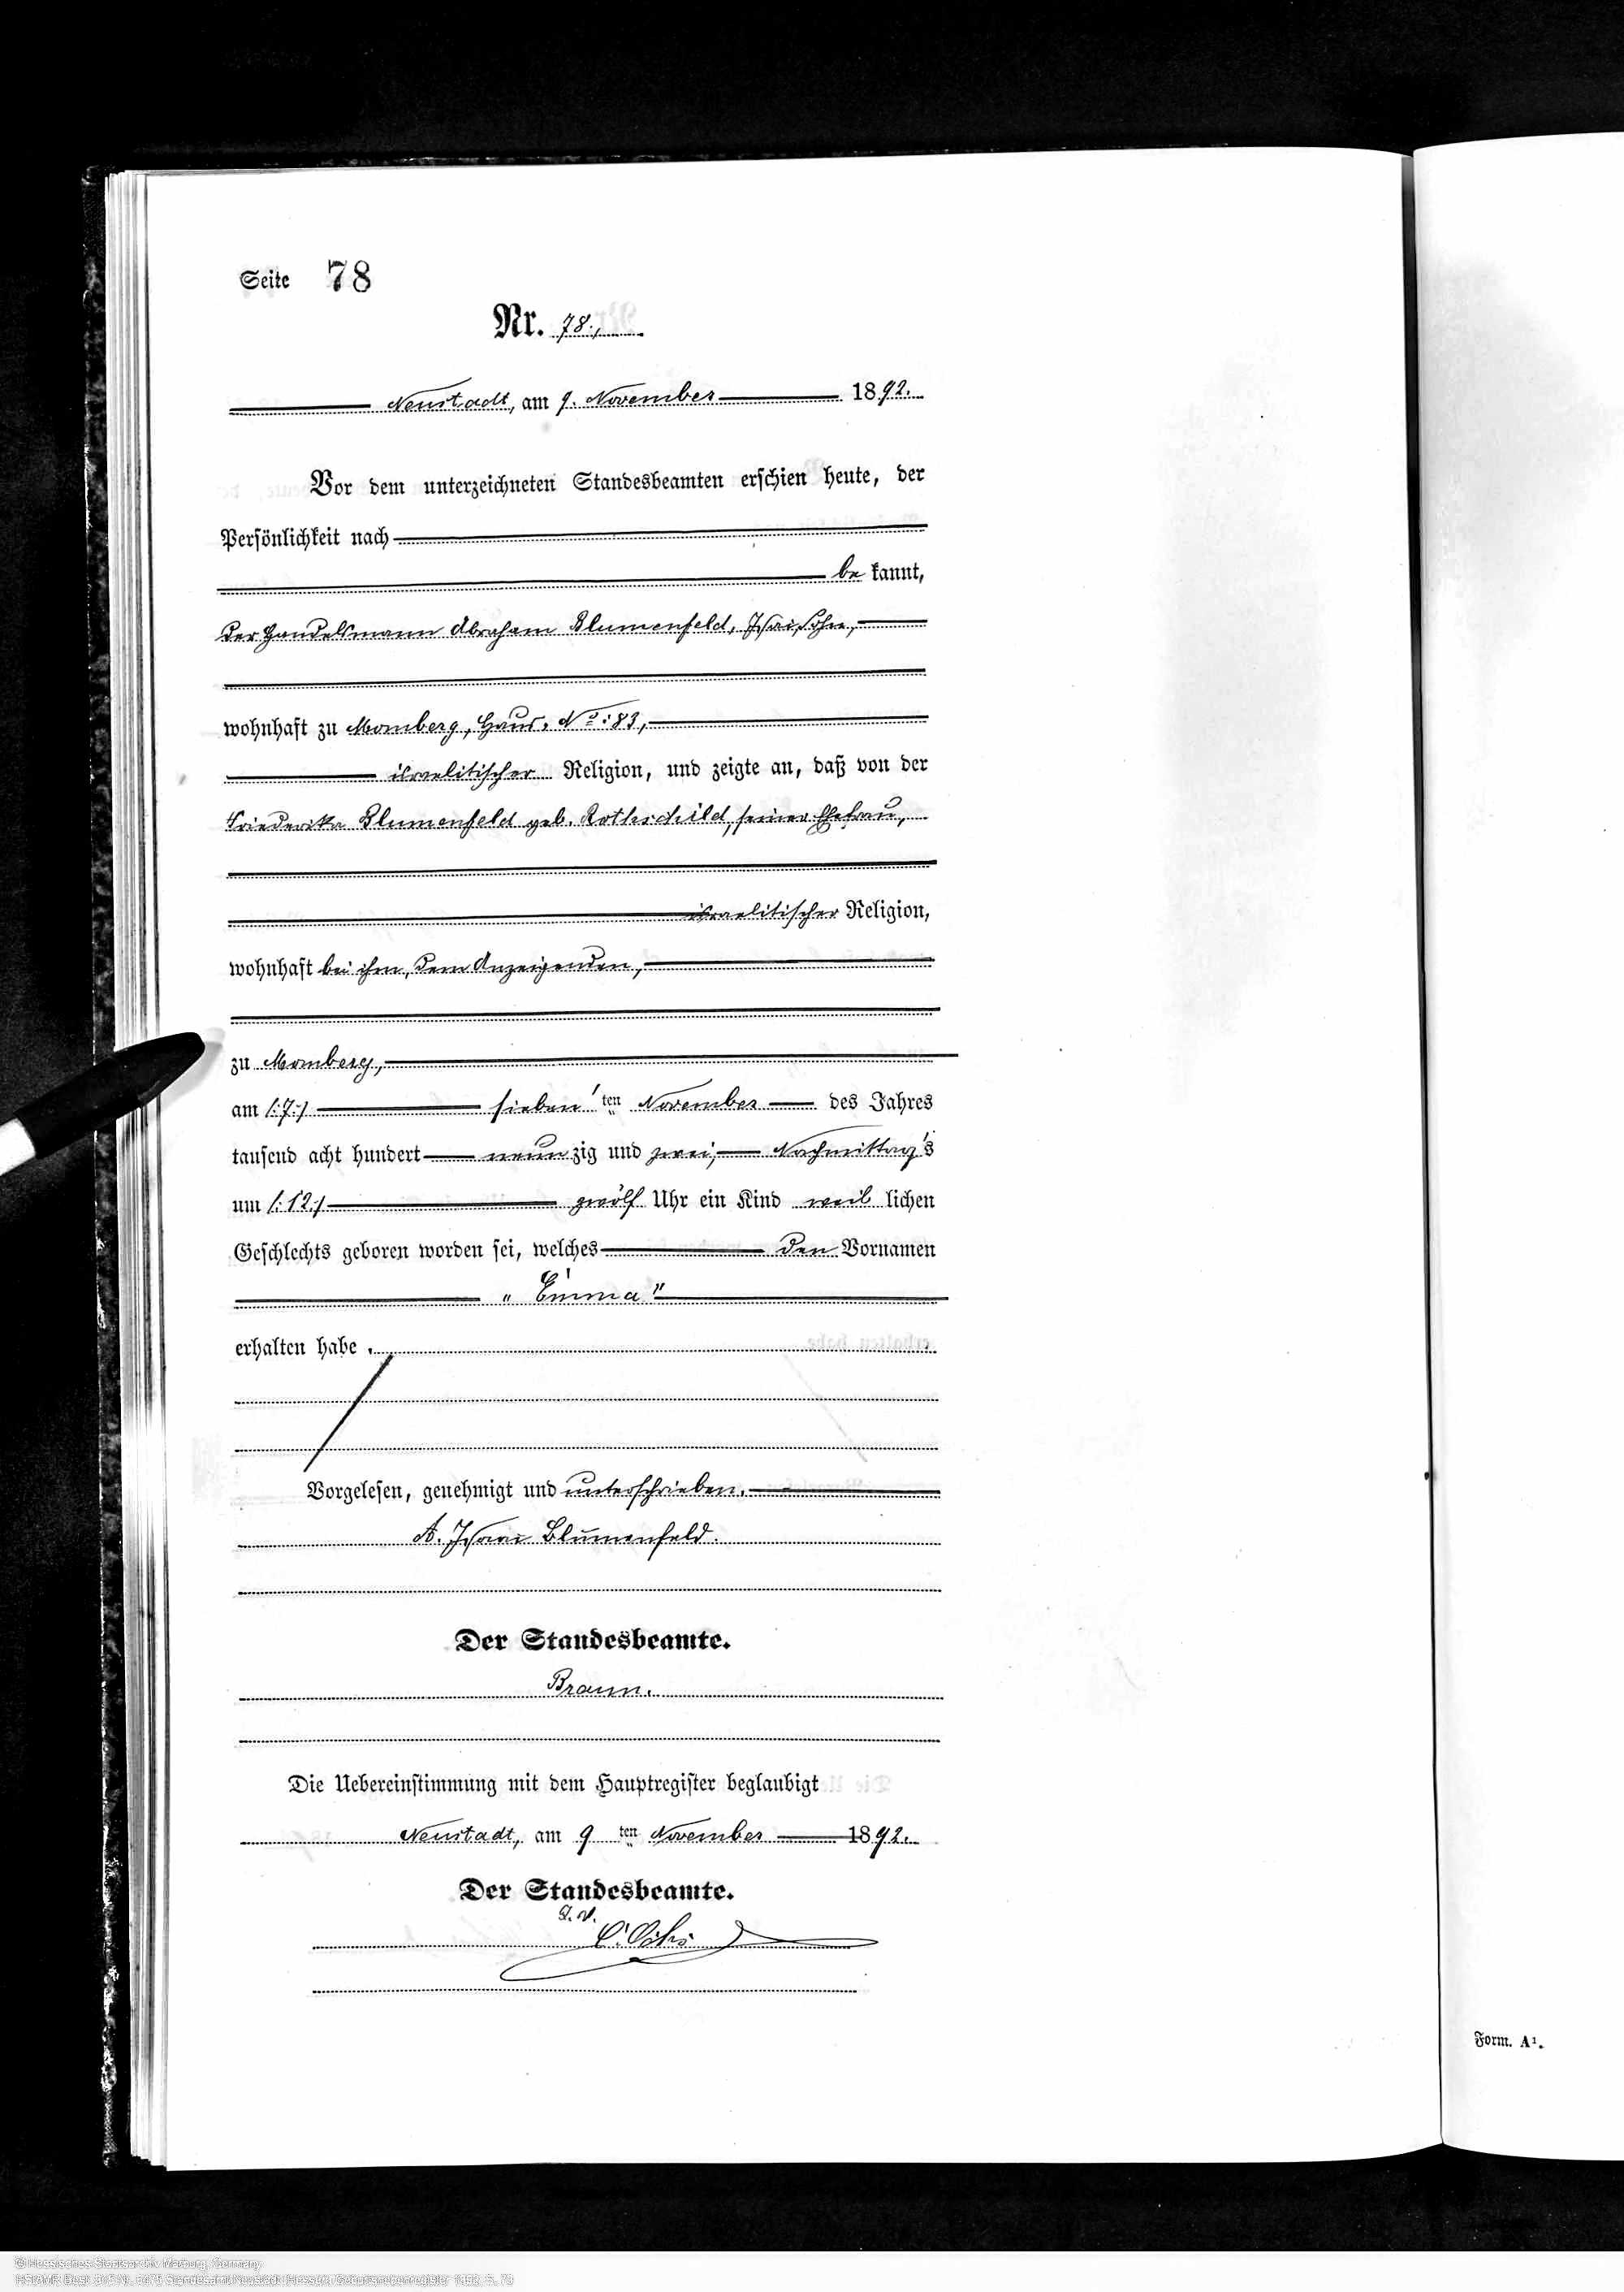 Seite 78
Nr. 78.,
Neustadt, am 9. November 1892.
Vor dem unterzeichneten Standesbeamten erschien heute, der
Persönlichkeit nach
be kannt,
der Handelsmann Abraham Blumenfeld, Isai Sohn,
wohnhaft zu Momberg, Haus. No: 83,
israelitischer Religion, und zeigte an, daß von der
Friederika Blumenfeld geb. Rothschild, seiner Ehefrau,
israelitischer Religion,
wohnhaft bei ihm, dem Anzeigenden,
zu Momberg,
am /:7:/ sieben ten November des Jahres
tausend acht hundert neun zig und zwei, Nachmittag's
um /:12:/ zwölf Uhr ein Kind weib lichen
Geschlechts geboren worden sei, welches den Vornamen
„Emma"
erhalten habe .
Vorgelesen, genehmigt und unterschrieben.
A. Isaai Blumenfeld.
Der Standesbeamte.
Braun.
Die Uebereinstimmung mit dem Hauptregister beglaubigt
Neustadt, am 9 ten November 1892.
Der Standesbeamte.
I. V.
Form. A¹.
© Hessisches Staatsarchiv Marburg, Germany